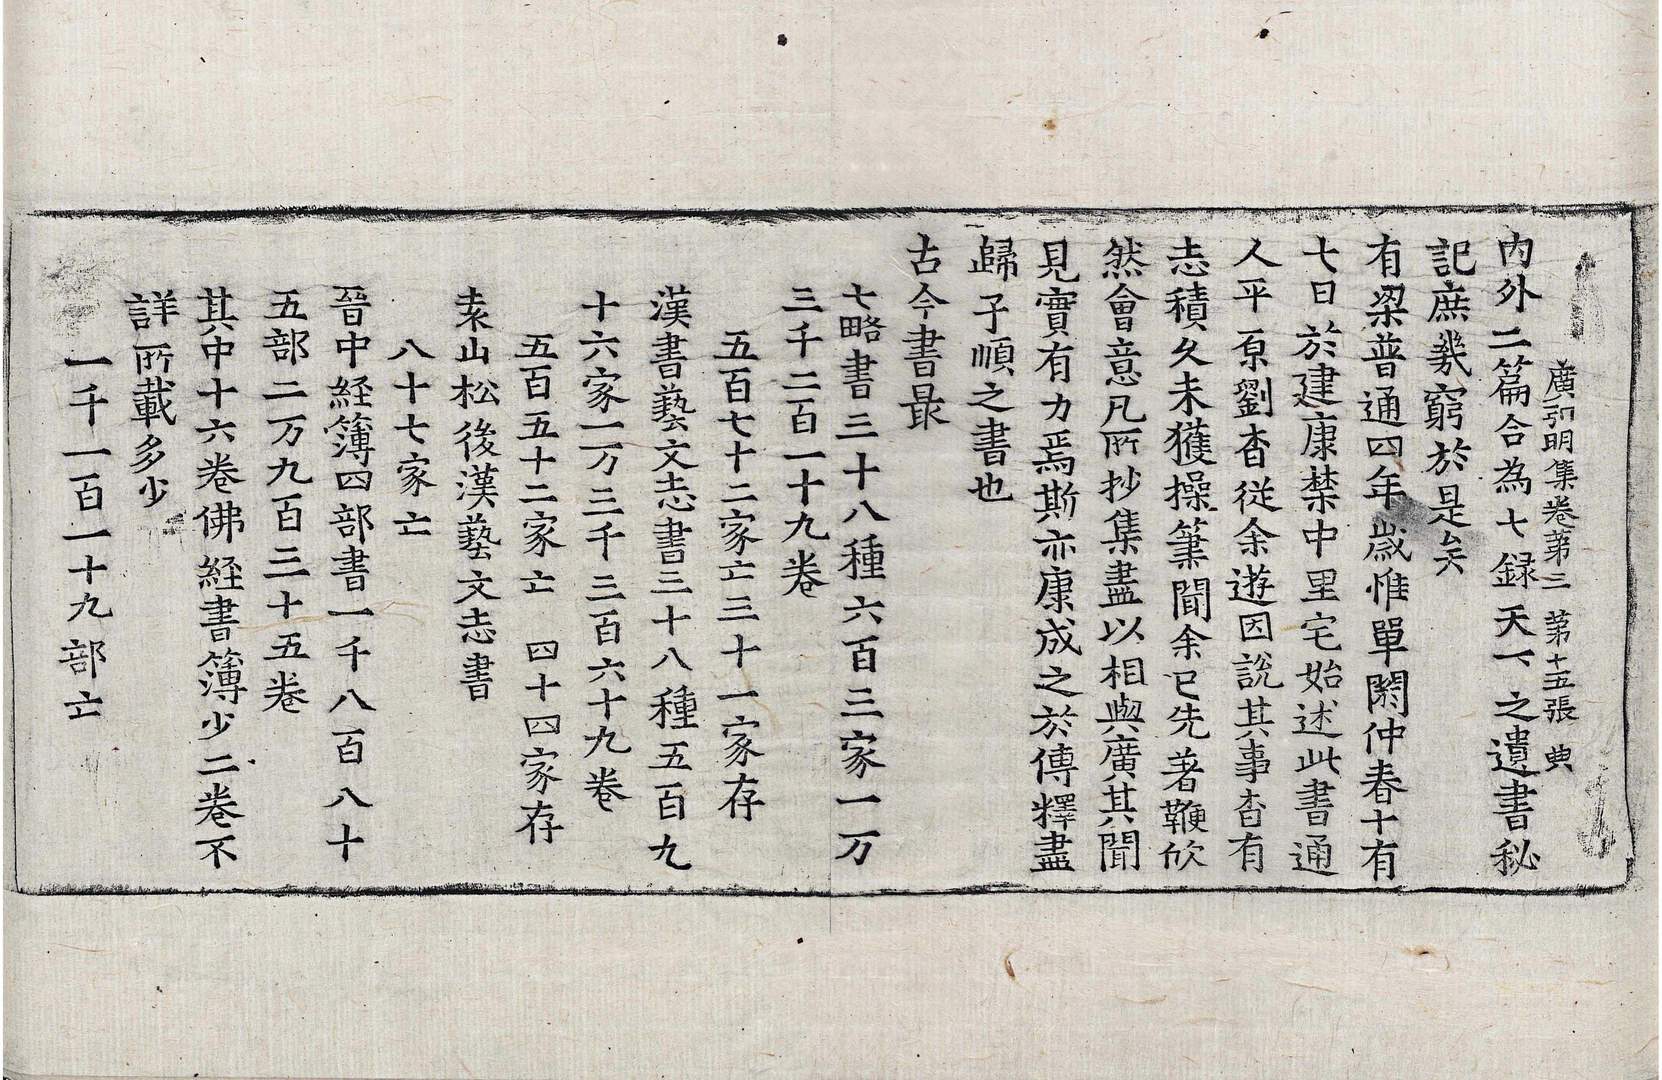 廣弘明集卷第三 第十五張 典
內外二篇合為七録天下之遺書秘
記庶幾窮於是矣
有梁普通四年歲惟單閼仲春十有
七日於建康禁中里宅始述此書通
人平原劉杳從余遊因說其事杳有
志積久未獲操筆聞余已先著鞭欣
然會意凡所抄集盡以相與廣其聞
見實有力焉斯亦康成之於傳釋盡
歸子順之書也
古今書最
七略書三十八種六百三家一万
三千二百一十九卷
五百七十二家亡三十一家存
漢書藝文志書三十八種五百九
十六家一万三千三百六十九卷
五百五十二家亡 四十四家存
袁山松後漢藝文志書
八十七家亡
晉中経簿四部書一千八百八十
五部二万九百三十五卷
其中十六卷佛経書簿少二卷不
詳所載多少
一千一百一十九部亡